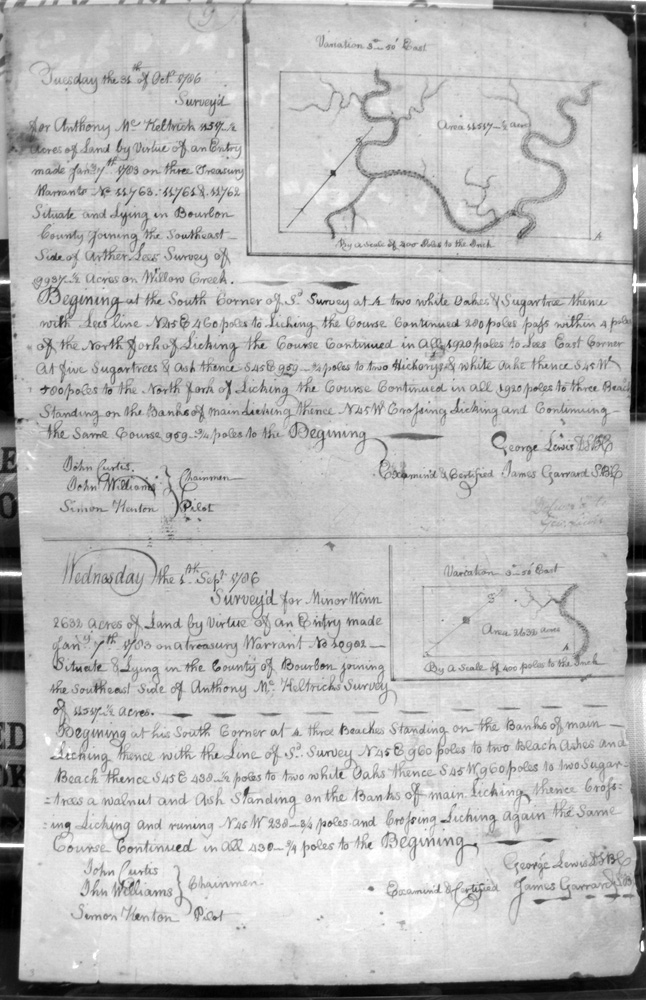 Variation 5°-50' East
Area 11517-½ acres
By a Scale of 400 Poles to the Inch
Tuesday the 31th of Octr 1786
Survey'd
for Anthony Mc Keltrick 11517-½
acres of Land by Virtue of an Entry
made Jany 7th 1783 on three Treasury
Warrants No 11763.11761 & 11762
Situate and Lying in Bourbon
County Joining the Southeast
Side of Arther Lees Survey of
9937-½ Acres on Willow Creek.
Begining at the South Corner of Sd Survey at 4 two white Oakes & Sugartree thence
with Lees line N45E 460 poles to Licking the Course Continued 280 poles pass within 4 poles
of the North fork of Licking the Course Continued in all 1920 poles to Lees East Corner
At five Sugartrees & Ash thence S45E 959-¾ poles to two Hickorys & white Oake thence S45W
500 poles to the North fork of Licking the Course Continued in all 1920 poles to three Beach
Standing on the Banks of main Licking thence N45W Crossing Licking and Continuing
the Same Course 959-¾ poles to the Begining
George Lewis D.S.B.C
John Curtis.
John Williams } Chainmen
Examin'd & Certified James Garrard S.B.C
Simon Kenton } Pilot
Wednesday the 1th Sept 1786
Survey'd for Minor Winn
2632 acres of Land by Virtue of an Entry made
Jany 7th 1783 on a treasury Warrant No 10902
Situate & Lying in the County of Bourbon joining
the Southeast Side of Anthony Mc Keltricks Survey
of 11517-½ acres.
Variation 5°-50' East
Area 2632 acres
By a Scale of 400 poles to the Inch
Begining at his South Corner at 4 three Beaches Standing on the Banks of main
Licking thence with the Line of Sd. Survey N45E 960 poles to two black Ashes and
Beach thence S45E 430-¾ poles to two white Oaks thence S45W 960 poles to two Sugar-
-trees a walnut and Ash Standing on the Banks of main Licking thence Cross-
-ing Licking and runing N45W 230-¾ poles and Crossing Licking Again the Same
Course Continued in all 430-¾ poles to the Begining.
John Curtis
Jhn Williams } Chainmen
George Lewis D.S.B.C
Examin'd & Certified James Garrard S.B.
Simon Kenton } Pilot